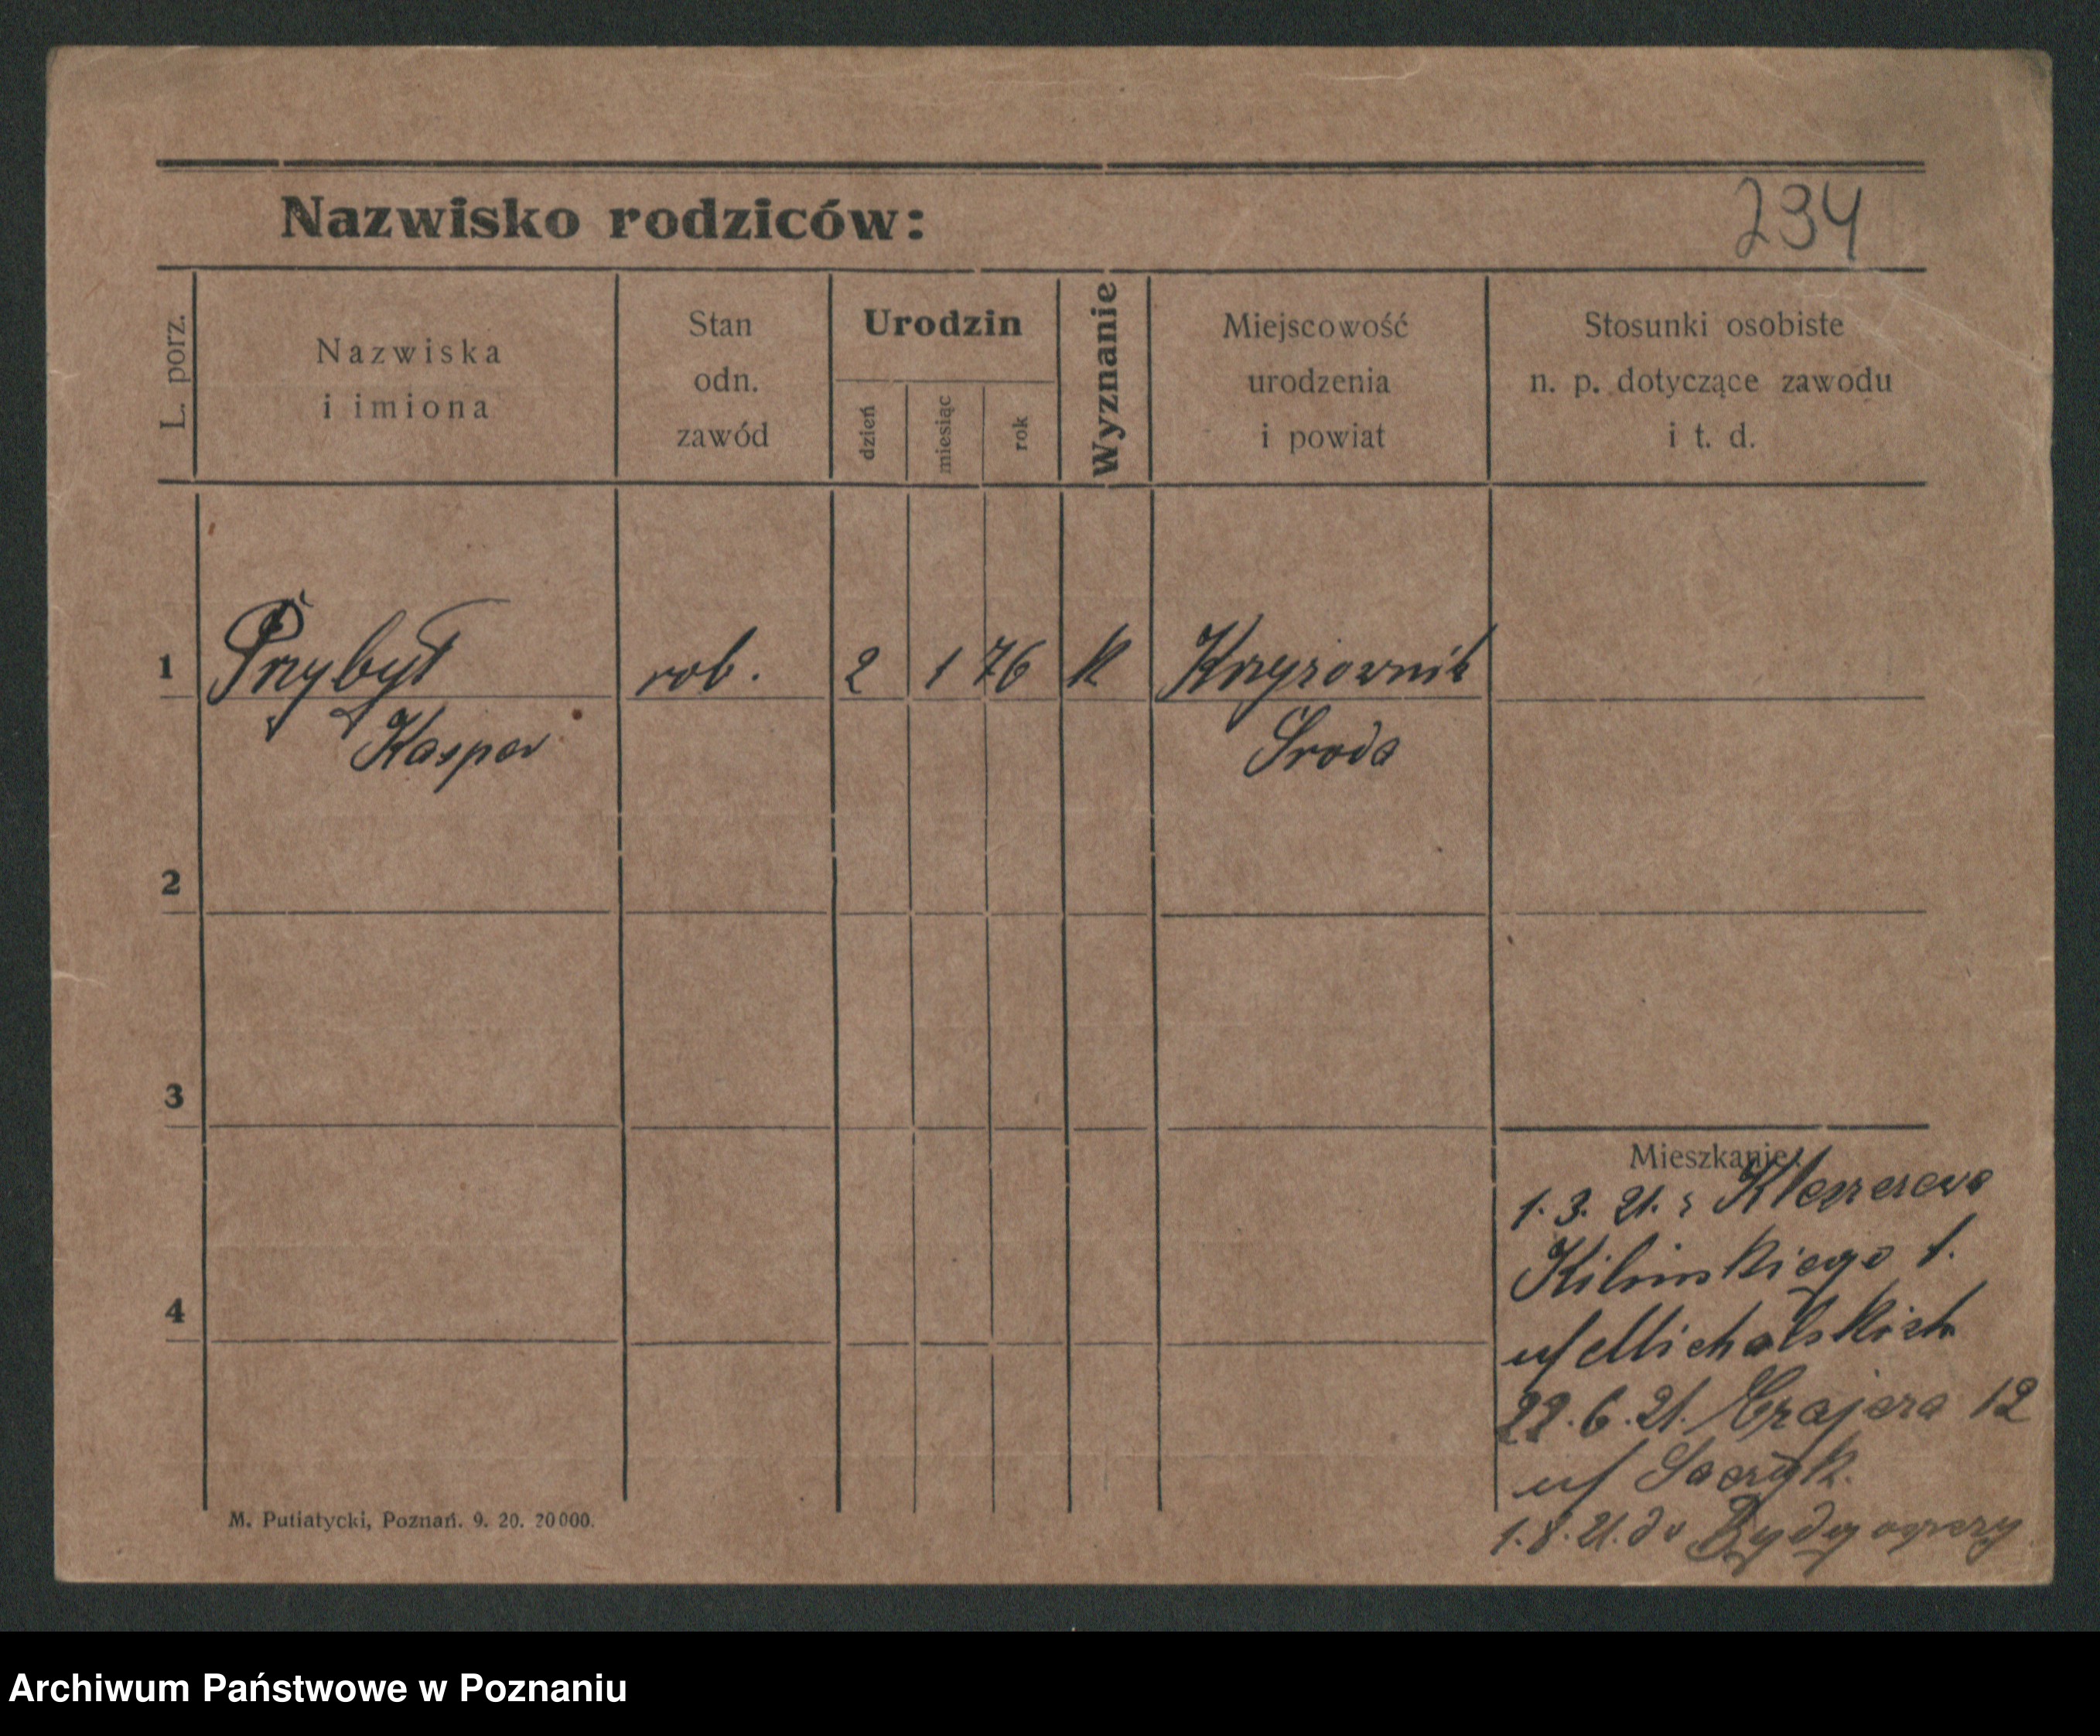 Nazwisko rodziców:
234
L. porz.
Nazwiska
i imiona
Stan
odn.
zawód
Urodzin
dzień
miesiąc
rok
Wyznanie
Miejscowość
urodzenia
i powiat
Stosunki osobiste
n. p. dotyczące zawodu
i t. d.
1
Przybył
rob.
2
1
76
k
Kaspar
Środa
2
3
4
Mieszkanie:
1. 3. 21. z
Kilinskiego 1.
u/ Michalskich
22. 6. 21. 12
u/
1. 8. 21. do Bydgoszczy
M. Putiatycki, Poznań. 9. 20. 20000.
Archiwum Państwowe w Poznaniu